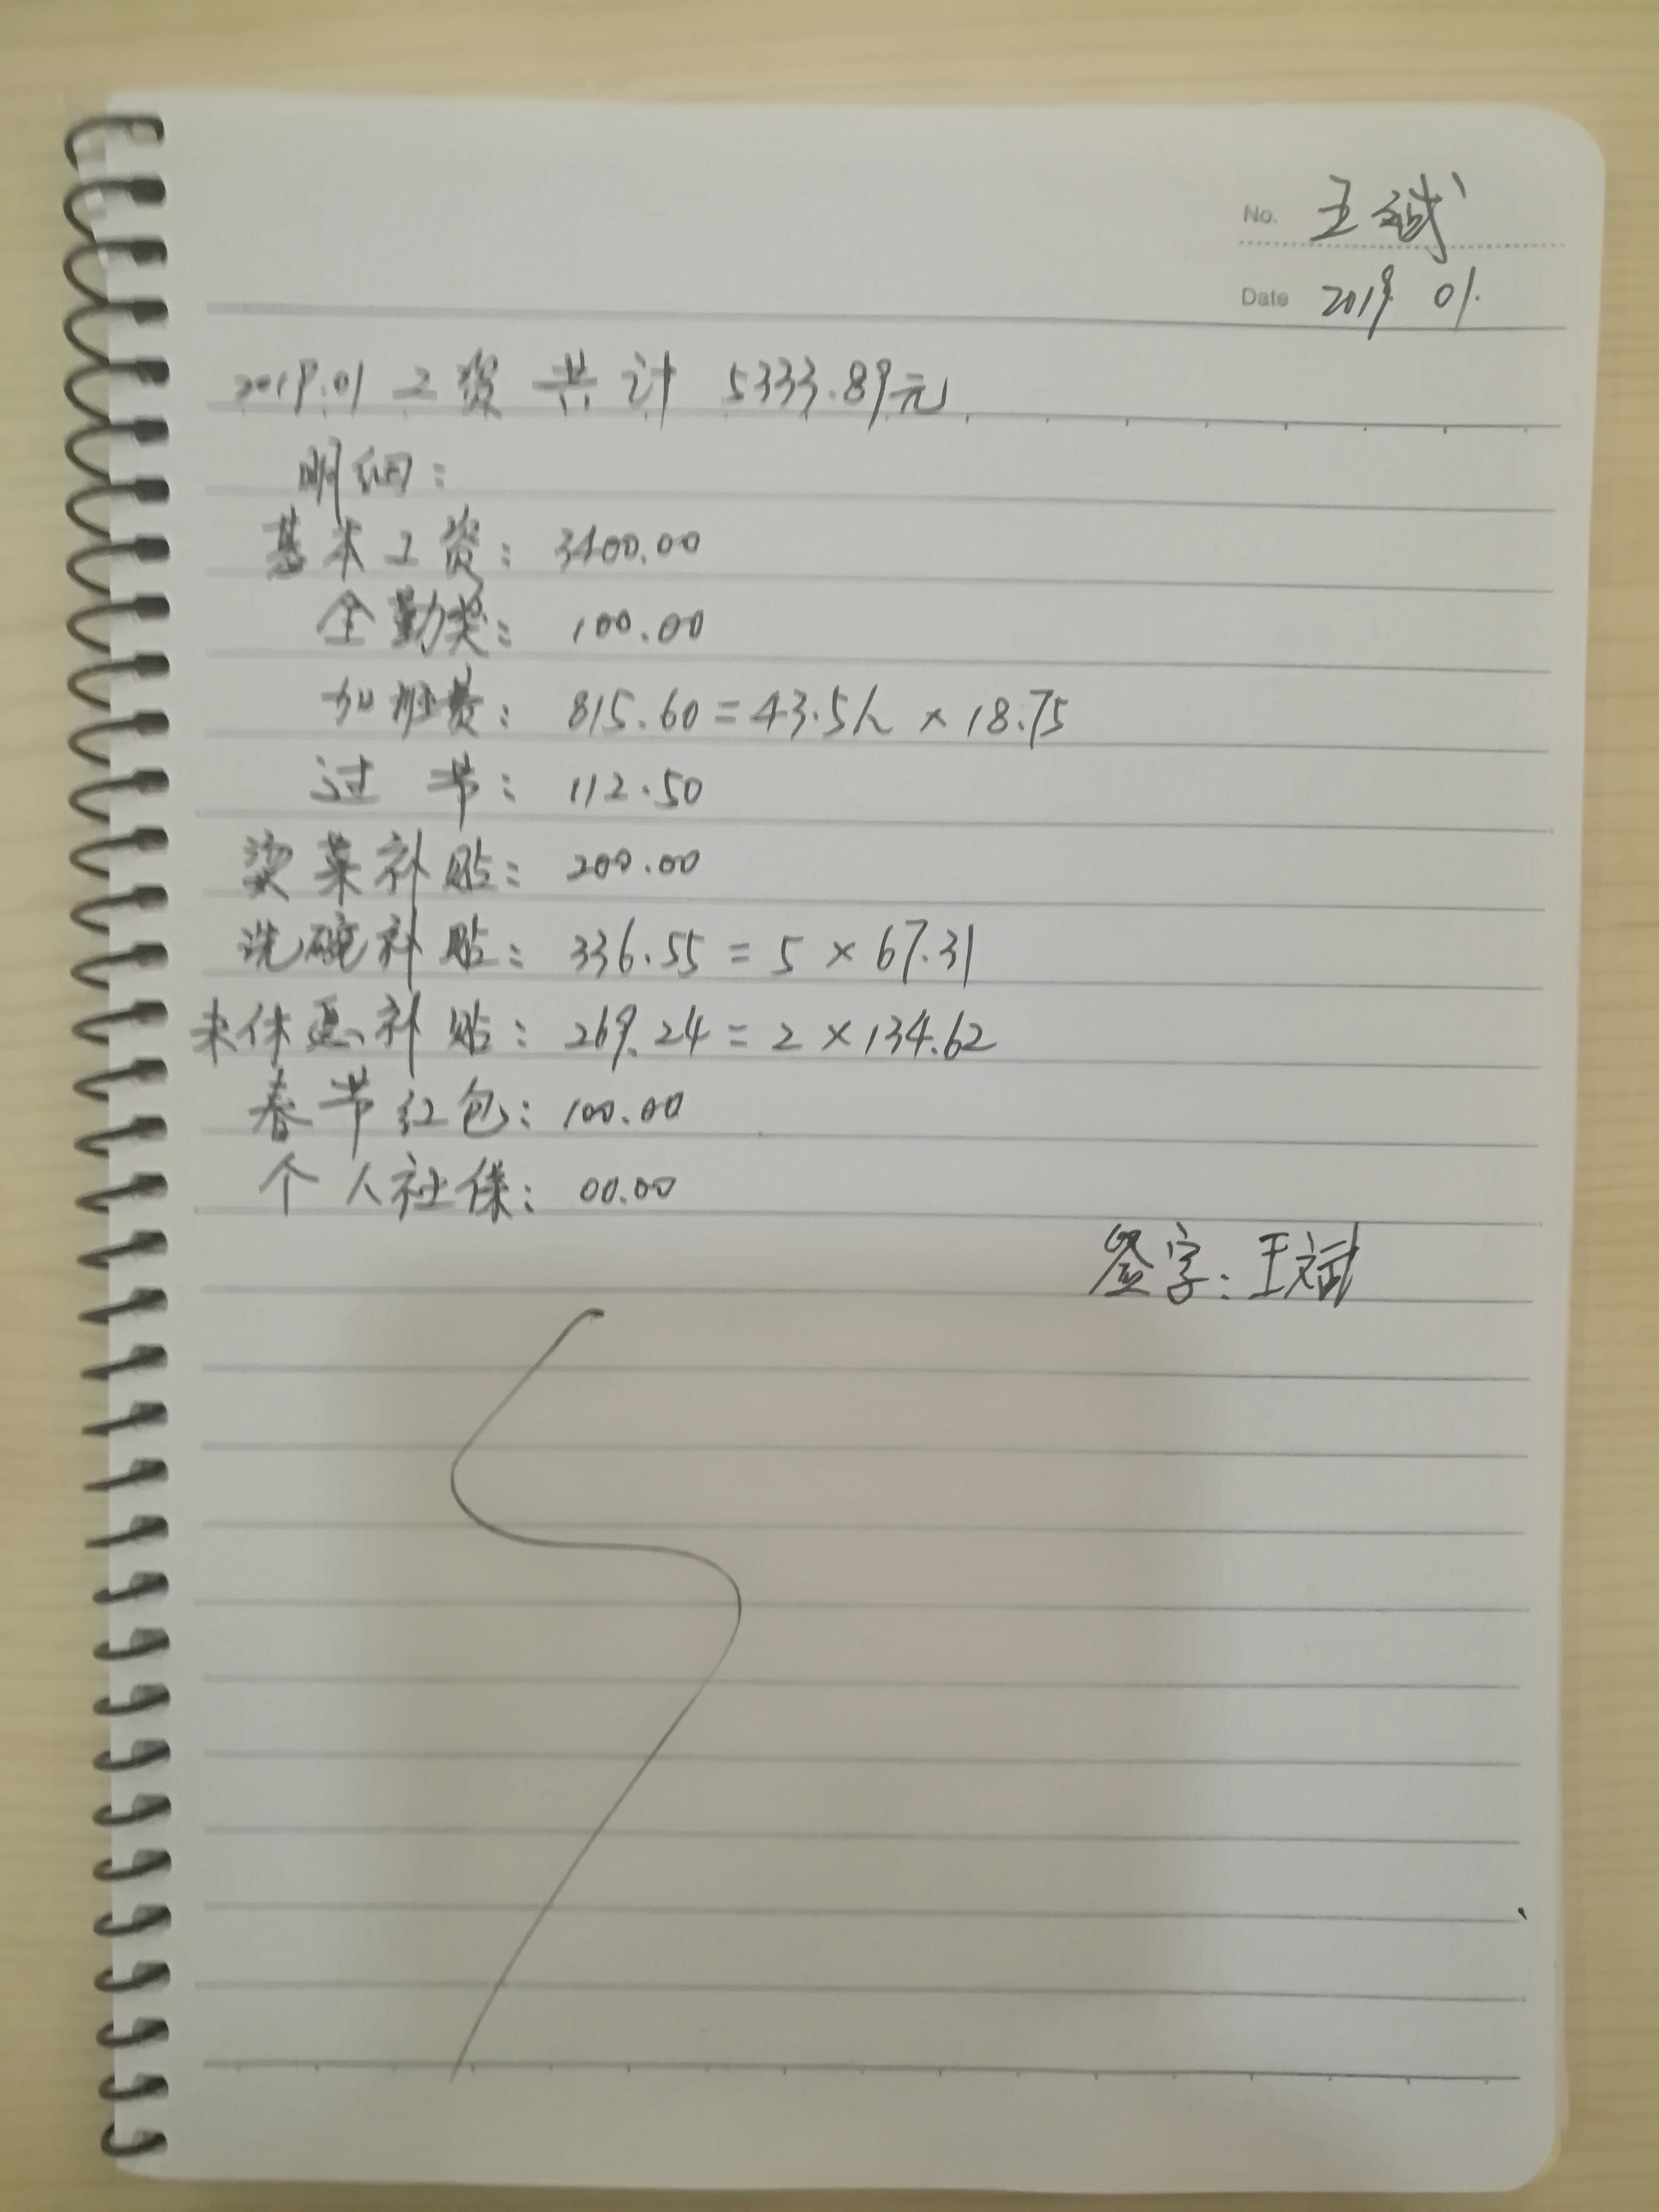 No. 王斌
Date 2019 01.
2019.01 工资 共计 5333.89元
明细:
基本工资: 3400.00
全勤奖: 100.00
加班费: 815.60 = 43.5h × 18.75
过 节: 112.50
烫菜补贴: 200.00
洗碗补贴: 336.55 = 5 × 67.31
未休息补贴: 269.24 = 2 × 134.62
春节红包: 100.00
个人社保: 00.00
签字: 王斌